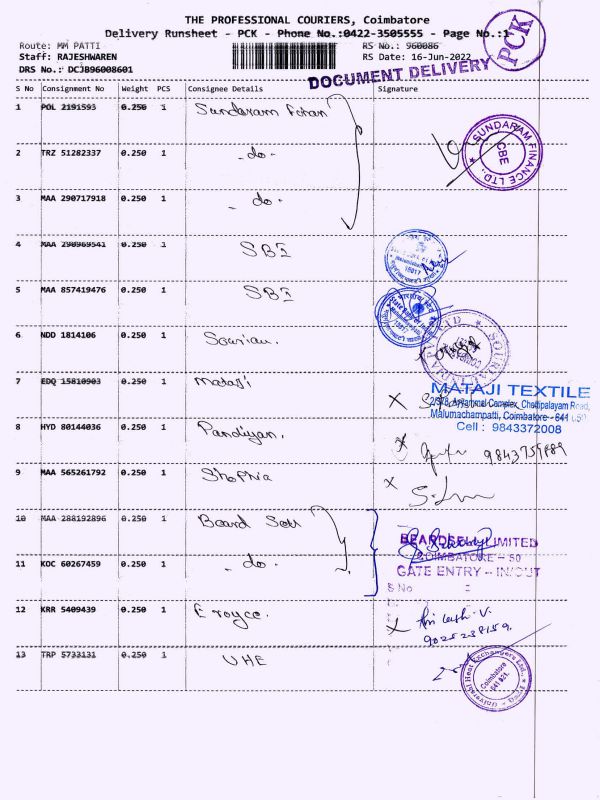 THE PROFESSIONAL COURIERS, Coimbatore
Delivery Runsheet - PCK - Phone No.:0422-3505555 - Page No.:1
PCK
Route: MM PATTI
RS No.: 960086
Staff: RAJESHWAREN
RS Date: 16-Jun-2022
DRS No.: DCJB96008601
DOCUMENT DELIVERY
S No Consignment No Weight PCS Consignee Details Signature
1 POL 2191593 0.250 1 Sundaram
SUNDARAM FINANCE LTD.,
CBE
2 TRZ 51282337 0.250 1 - do -
3 MAA 290717918 0.250 1 - do -
4 MAA 290969541 0.250 1 SBI
5 MAA 857419476 0.250 1 SBI
6 NDD 1814106 0.250 1
7 EDQ 15810903 0.250 1 Mataji
MATAJI TEXTILE
Complex, Chettipalayam Road,
Malumachampatti, Coimbatore - 641 050
Cell : 9843372008
8 HYD 80144036 0.250 1 Pandiyan.
9843759889
9 MAA 565261792 0.250 1 Shophia
10 MAA 288192896 0.250 1 Board Sell
LIMITED
COIMBATORE - 50
11 KOC 60267459 0.250 1 - do -
GATE ENTRY - IN/OUT
S No :
12 KRR 5409439 0.250 1 E royce.
9025238159
13 TRP 5733131 0.250 1 UHE
Universal Heat Exchangers Ltd.,
Coimbatore
641 021.